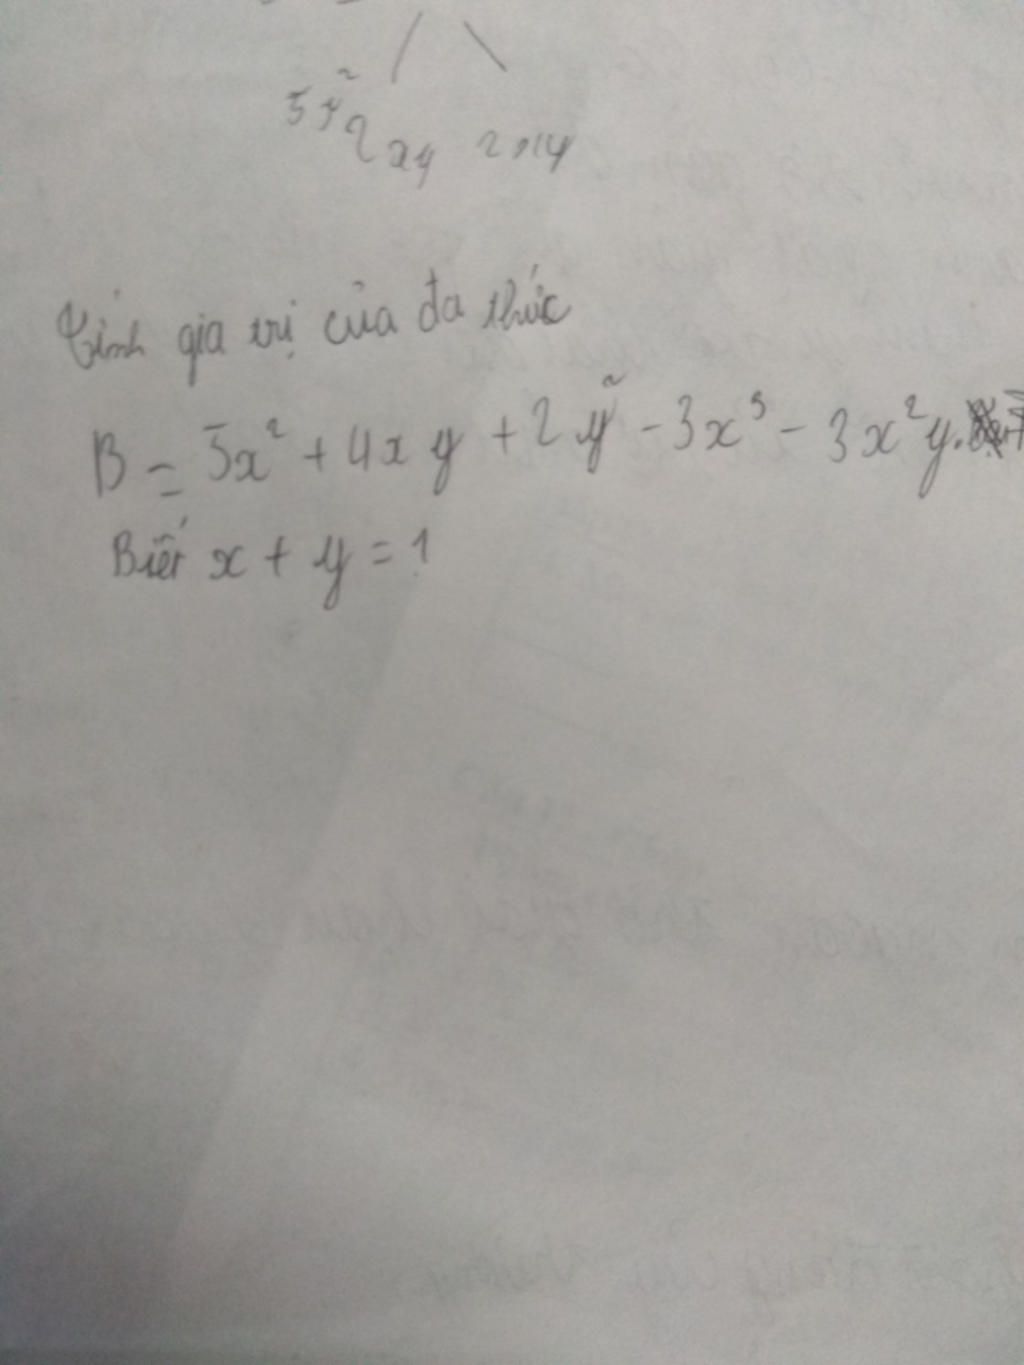 5y²
2xy 2xy
Tính gia trị của đa thức
B = 5x² + 4xy + 2y² - 3x³ - 3x²y.
Biết x + y = 1